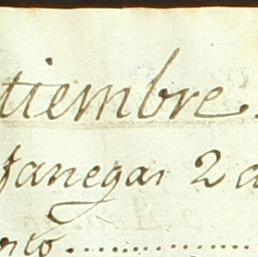 tiembre
fanegas 2 a